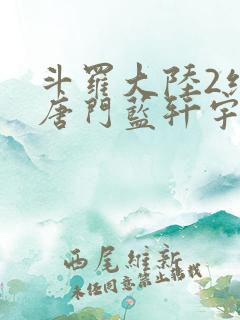 斗羅大陸2絕
唐門藍軒宇
西尾維新
未經同意禁止轉載